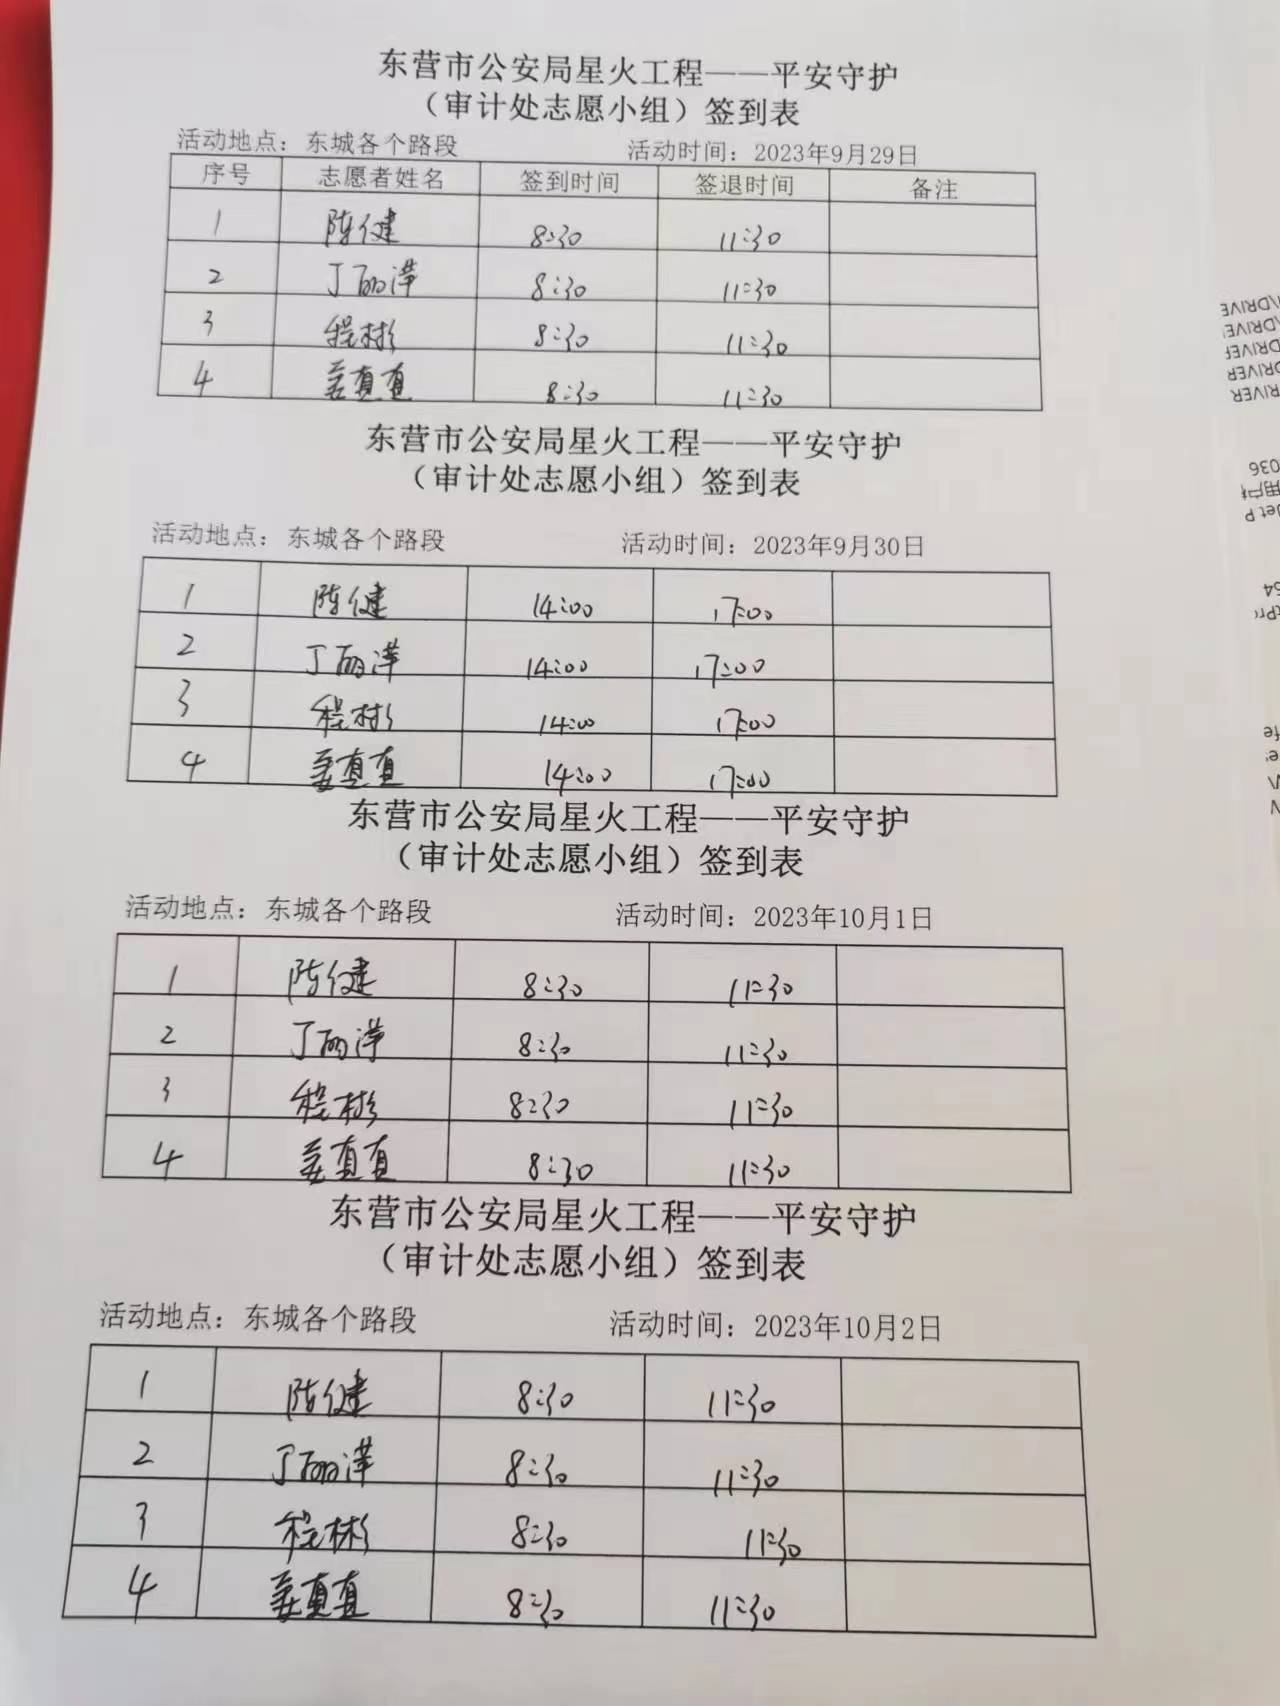 东营市公安局星火工程——平安守护
（审计处志愿小组）签到表
活动地点：东城各个路段 活动时间：2023年9月29日
序号 志愿者姓名 签到时间 签退时间 备注
1 陈健 8:30 11:30
2 丁丽萍 8:30 11:30
3 程彬 8:30 11:30
4 姜真真 8:30 11:30
东营市公安局星火工程——平安守护
（审计处志愿小组）签到表
活动地点：东城各个路段 活动时间：2023年9月30日
1 陈健 14:00 17:00
2 丁丽萍 14:00 17:00
3 程彬 14:00 17:00
4 姜真真 14:00 17:00
东营市公安局星火工程——平安守护
（审计处志愿小组）签到表
活动地点：东城各个路段 活动时间：2023年10月1日
1 陈健 8:30 11:30
2 丁丽萍 8:30 11:30
3 程彬 8:30 11:30
4 姜真真 8:30 11:30
东营市公安局星火工程——平安守护
（审计处志愿小组）签到表
活动地点：东城各个路段 活动时间：2023年10月2日
1 陈健 8:30 11:30
2 丁丽萍 8:30 11:30
3 程彬 8:30 11:30
4 姜真真 8:30 11:30